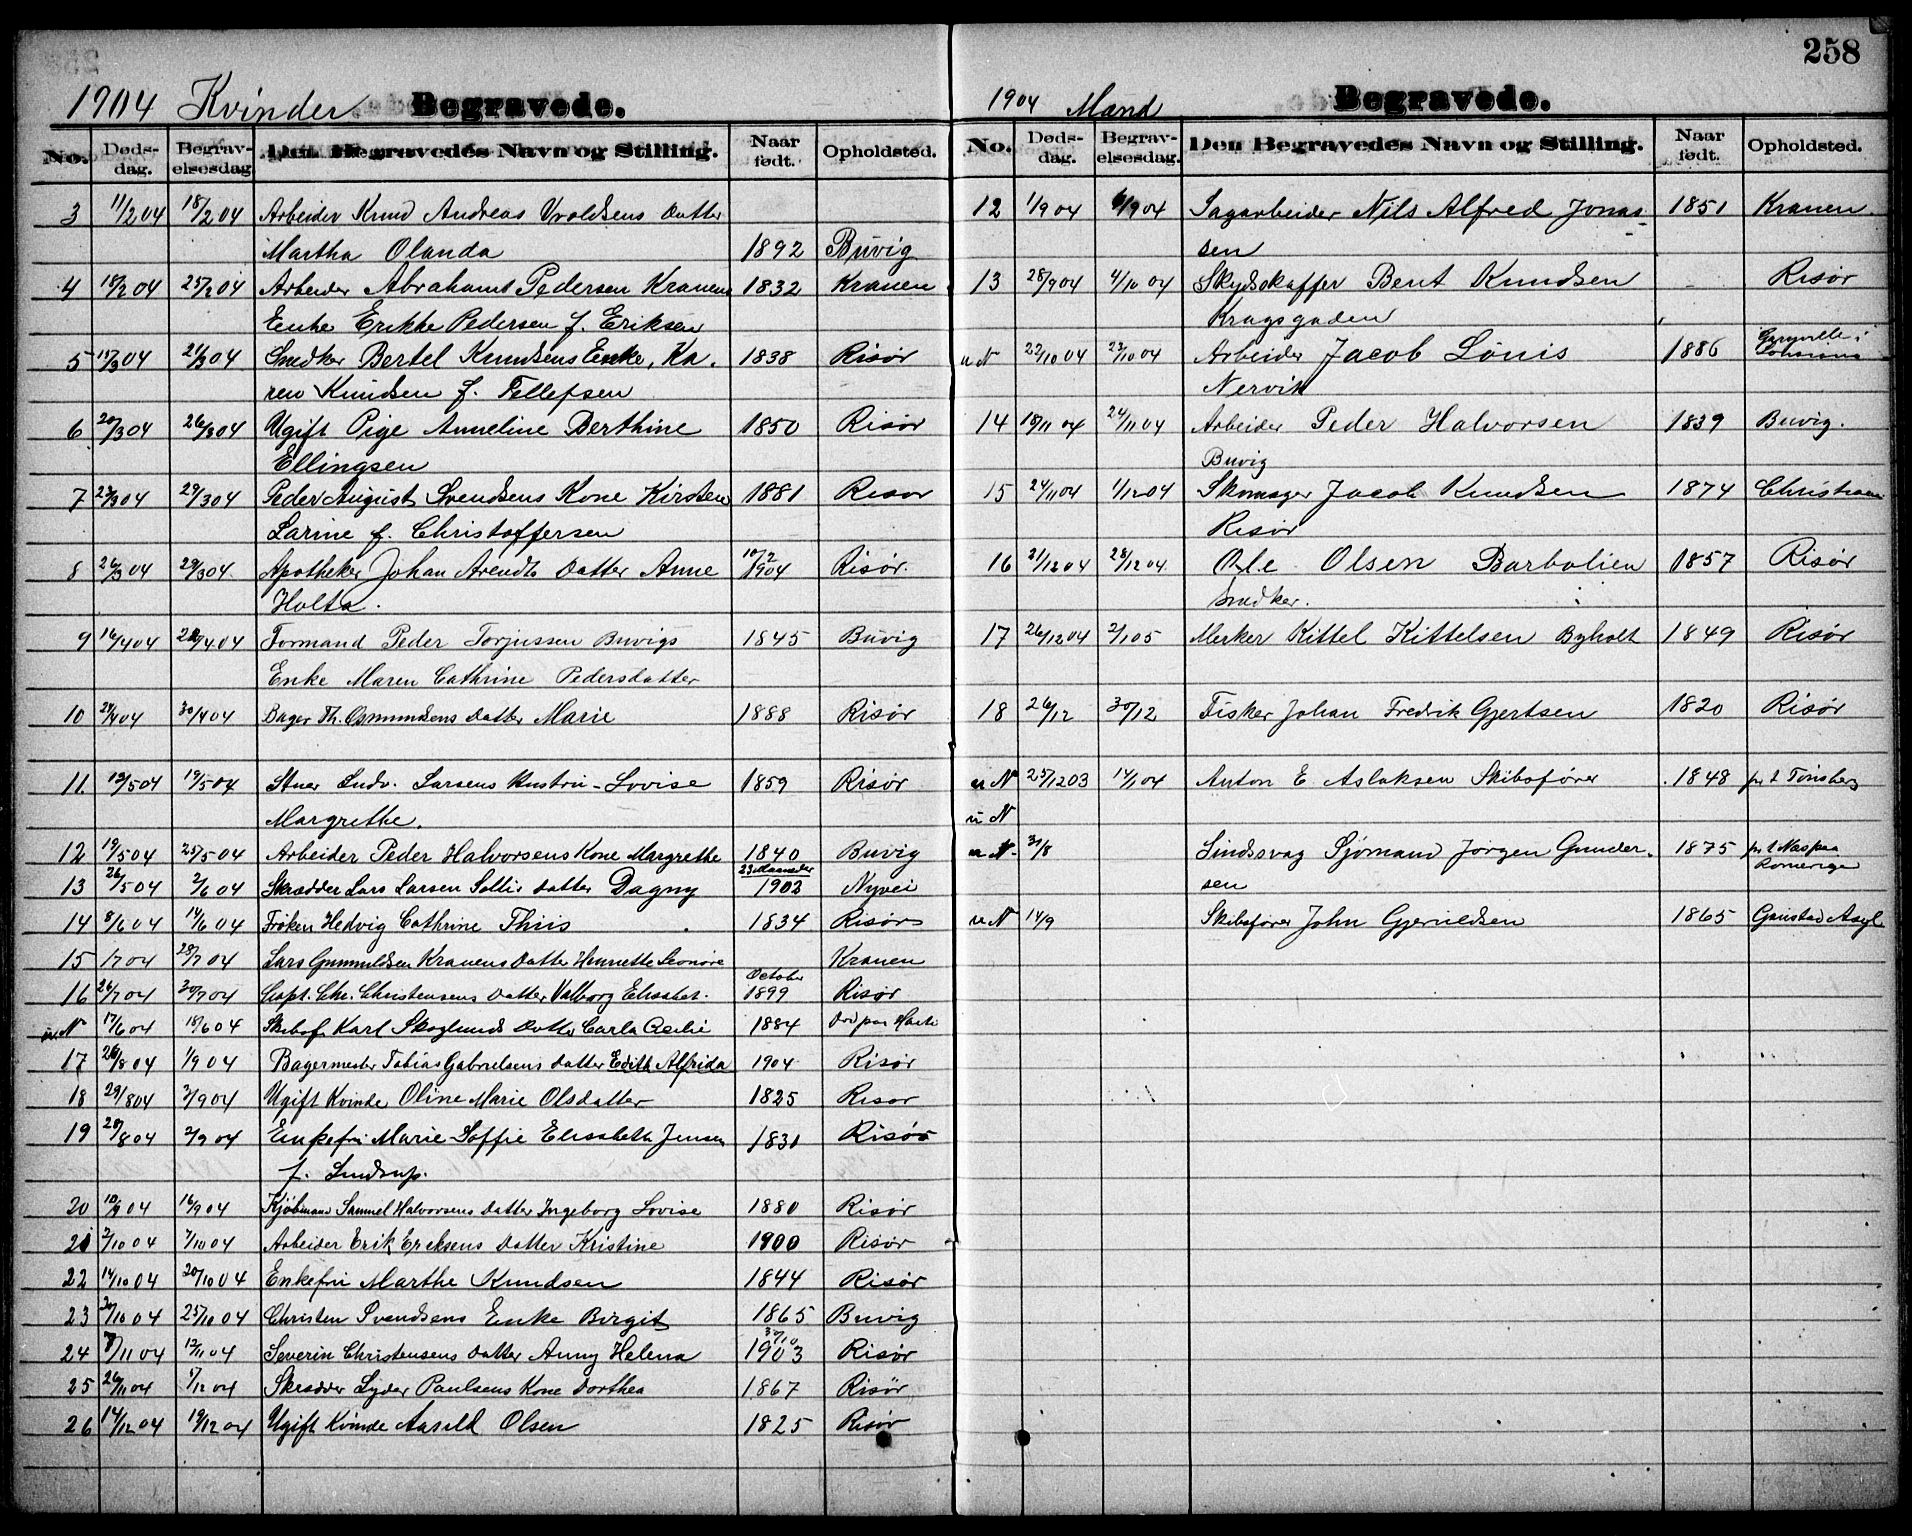 258
1904 Kvinder Begravede.
No. Døds-dag. Begrav-elsesdag Den Begravedes Navn og Stilling. Naar født. Opholdsted.
3 11/2 04 18/2 04 Arbeider Knud Andreas Vroldsens Datter
Martha Olanda 1892 Buvig
4 18/2 04 25/2 04 Arbeider Abraham Pedersen Kranens 1832 Kranen
Enke Erikke Pedersen f. Eriksen
5 15/3 04 21/3 04 Snedker Bertel Knudsens Enke, Ka- 1838 Risør
ren Knudsen f. Tellefsen
6 20/3 04 26/3 04 Ugift Pige Anneline Berthine 1850 Risør
Ellingsen
7 23/3 04 29/3 04 Peder August Svendsens Kone Kirsten 1881 Risør
Larine f. Christoffersen
8 26/3 04 29/3 04 Apotheker Johan Arendts Datter Anne 10/2 1904 Risør.
Holta.
9 16/4 04 4 04 Formand Peder Torjussen Buvigs 1845 Buvig
Enke Maren Cathrine Pedersdatter
10 24/4 04 30/4 04 Bager Th. Osmundsens Datter Marie 1888 Risør
11. 12/5 04 19/5 04 Stuer Ludv. Larsens Hustru - Lovise 1859 Risør
Margrethe.
12 19/5 04 25/5 04 Arbeider Peder Halvorsens Kone Margrethe 1840 Buvig
13 26/5 04 2/6 04 Skrædder Lars Larsen Sollis Datter Dagny 23 Maaneder 1902 Nyvei
14 8/6 04 14/6 04 Frøken Hedvig Cathrine Thiis 1834 Risør
15 1/7 04 04 Lars Gunnuldsen Kranens Datter Henriette Leonore Kranen
16 26/7 04 30/7 04 Capt. Chr. Christensens Datter Valborg Elisabet. October 1899 Risør
u. N 17/6 04 18/6 04 Skibsf. Karl Skoglunds Datter Carla Cecilie 1884 Død paa
17 26/8 04 1/9 04 Bagermester Tobias Gabrielsens Datter Edith Alfrida 1904 Risør
18 29/8 04 3/9 04 Ugift Kvinde Oline Marie Olsdatter 1825 Risør
19 29/8 04 2/9 04 Enkefru Marie Soffie Elisabeth Jensen 1831 Risør
f. Lindrup.
20 10/9 04 16/9 04 Kjøbmand Samuel Halvorsens Datter Ingeborg Lovise 1880 Risør
21 2/10 04 7/10 04 Arbeider Erik Eriksens Datter Kristine 1900 Risør
22 14/10 04 20/10 04 Enkefru Marthe Knudsen 1844 Risør
23 20/10 04 25/10 04 Christen Svendsens Enke Birgit 1865 Buvig
24 7/11 04 12/11 04 Severin Christensens Datter Anny Helena 30/10 1903 Risør
25 26/11 04 1/12 04 Skrædder Lyder Paulsens Kone Dorthea 1867 Risør
26 14/12 04 19/12 04 Ugift Kvinde Aasild Olsen 1825 Risør
1904 Mænd Begravede.
No. Døds-dag. Begrav-elsesdag. Den Begravedes Navn og Stilling. Naar født. Opholdsted.
12 1/9 04 6/9 04 Sagarbeider Nils Alfred Jonas- 1851 Kranen.
sen
13 28/9 04 4/10 04 Skydsskaffer Bent Knudsen - Risør
Kragsgaden
u N 22/10 04 22/10 04 Arbeider Jacob Lönis 1886
Nervik
14 18/11 04 24/11 04 Arbeider Peder Halvorsen 1839 Buvig.
Buvig
15 24/11 04 1/12 04 Skomager Jacob Knudsen 1874
Risør
16 21/12 04 28/12 04 Ole Olsen Barbolien 1857 Risør
Snedker.
17 26/12 04 2/1 05 Merker Kittel Kittelsen Byholt 1849 Risør
18 26/12 30/12 Fisker Johan Fredrik Gjertsen 1820 Risør
u N 25/12 03 14/1 04 Anton E Aslaksen Skibsfører 1848 Tönsberg
u N
u N. 30/8 Lindsvag Sjömand Jørgen Gunder- 1875
sen Romerige
u N 14/9 Skibsfører John Gjeruldsen 1865 Gaustad Asyl